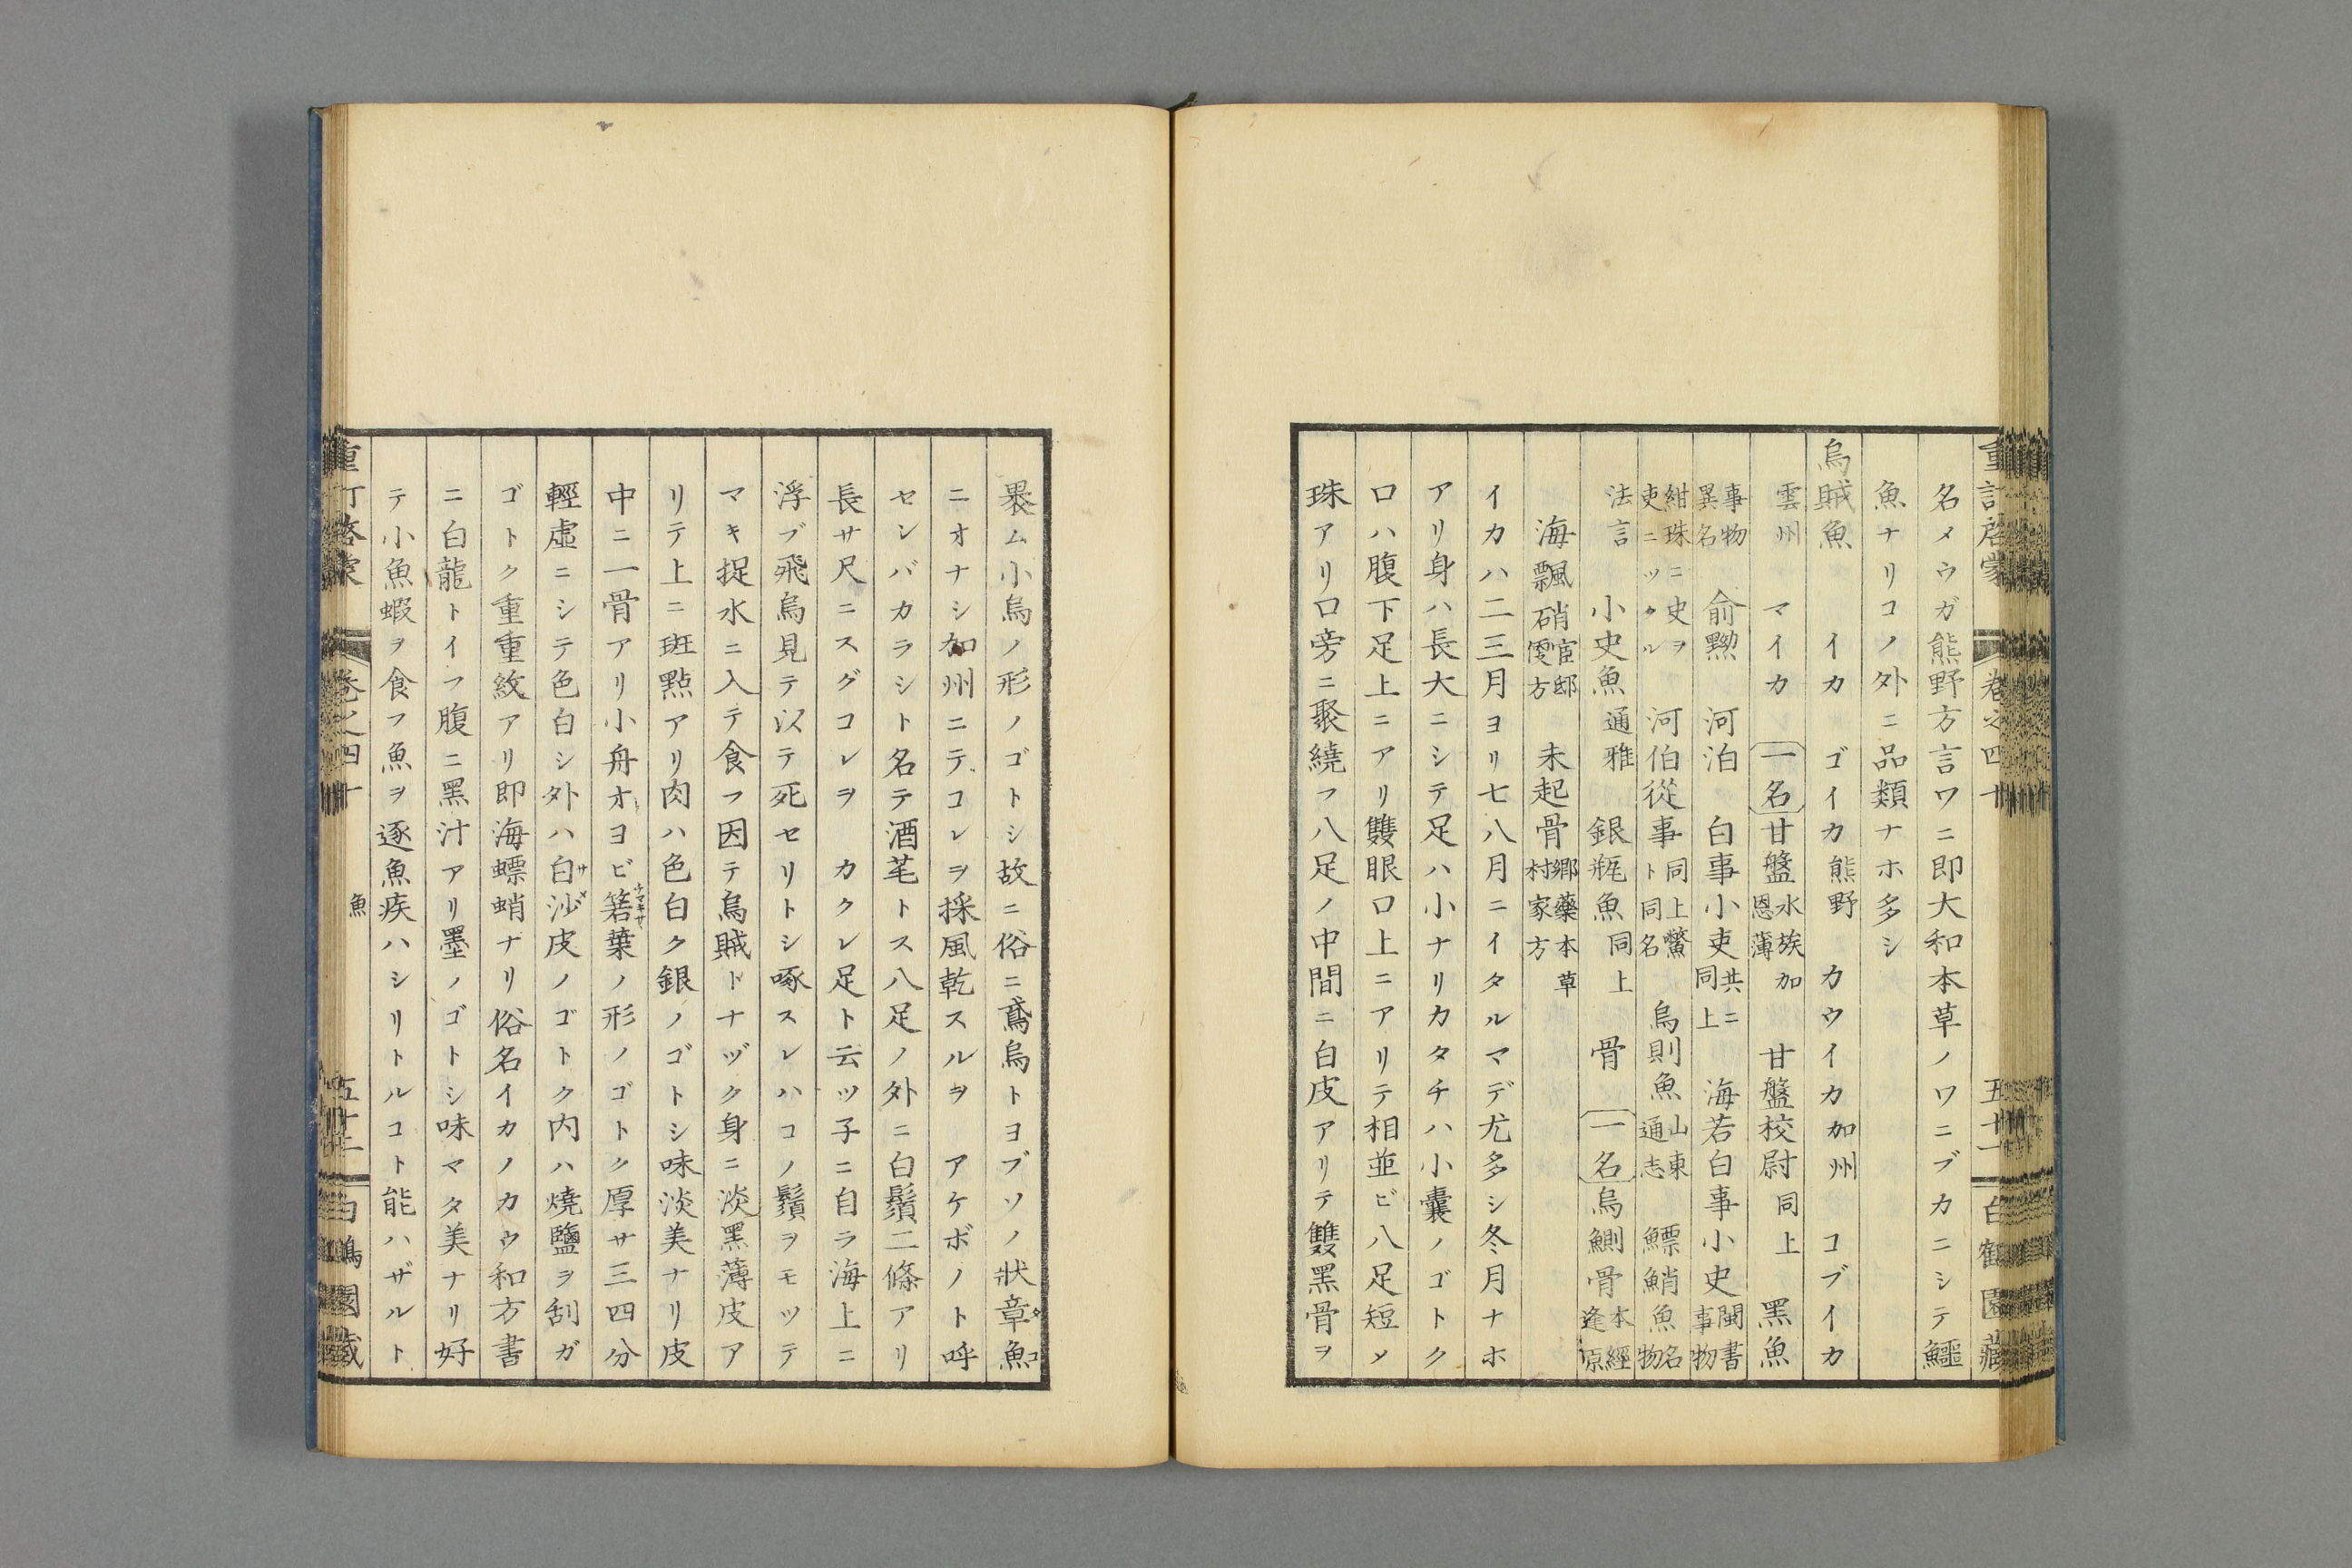 重訂啓蒙 卷之四十 五十一 白鶴園藏
名メウガ熊野方言ワニ即大和本草ノワニブカニシテ鱷
魚ナリコノ外ニ品類ナホ多シ
烏賊魚 イカ ゴイカ熊野 カウイカ加州 コブイカ
雲州 マイカ 一名甘盤水埃加恩薄 甘盤校尉同上 黑魚
事物異名 俞黝 河泊 白事小吏共ニ同上 海若白事小史閩書事物
紺珠ニ史ヲ吏ニツクル 河伯從事同上鱉ト同名 烏則魚山東通志 鰾鮹魚名物
法言 小史魚通雅 銀瓶魚同上 骨 一名烏鰂骨本經逢原
海飄硝宦邸便方 未起骨鄉藥本草村家方
イカハ二三月ヨリ七八月ニイタルマデ尤多シ冬月ナホ
アリ身ハ長大ニシテ足ハ小ナリカタチハ小囊ノゴトク
口ハ腹下足上ニアリ雙眼口上ニアリテ相並ビ八足短メ
珠アリ口旁ニ聚繞フ八足ノ中間ニ白皮アリテ雙黑骨ヲ
褁ム小烏ノ形ノゴトシ故ニ俗ニ鳶烏トヨブソノ狀章魚
タコ
ニオナシ加州ニテコレヲ採風乾スルヲ アケボノト呼
センバカラシト名テ酒芼トス八足ノ外ニ白鬚二條アリ
長サ尺ニスグコレヲ カクレ足ト云ツ子ニ自ラ海上ニ
浮ブ飛烏見テ以テ死セリトシ啄スレハコノ鬚ヲモツテ
マキ捉水ニ入テ食フ因テ烏賊トナヅク身ニ淡黑薄皮ア
リテ上ニ斑點アリ肉ハ色白ク銀ノゴトシ味淡美ナリ皮
中ニ一骨アリ小舟オヨビ箬葉ノ形ノゴトク厚サ三四分
チマキサヽ
輕虛ニシテ色白シ外ハ白沙皮ノゴトク内ハ燒鹽ヲ刮ガ
サメ
ゴトク重重紋アリ即海螵蛸ナリ俗名イカノカウ和方書
ニ白龍トイフ腹ニ黑汁アリ墨ノゴトシ味マタ美ナリ好
テ小魚蝦ヲ食フ魚ヲ逐魚疾ハシリトルコト能ハザルト
重訂啓蒙 卷之四十 魚 五十二 白鶴園藏